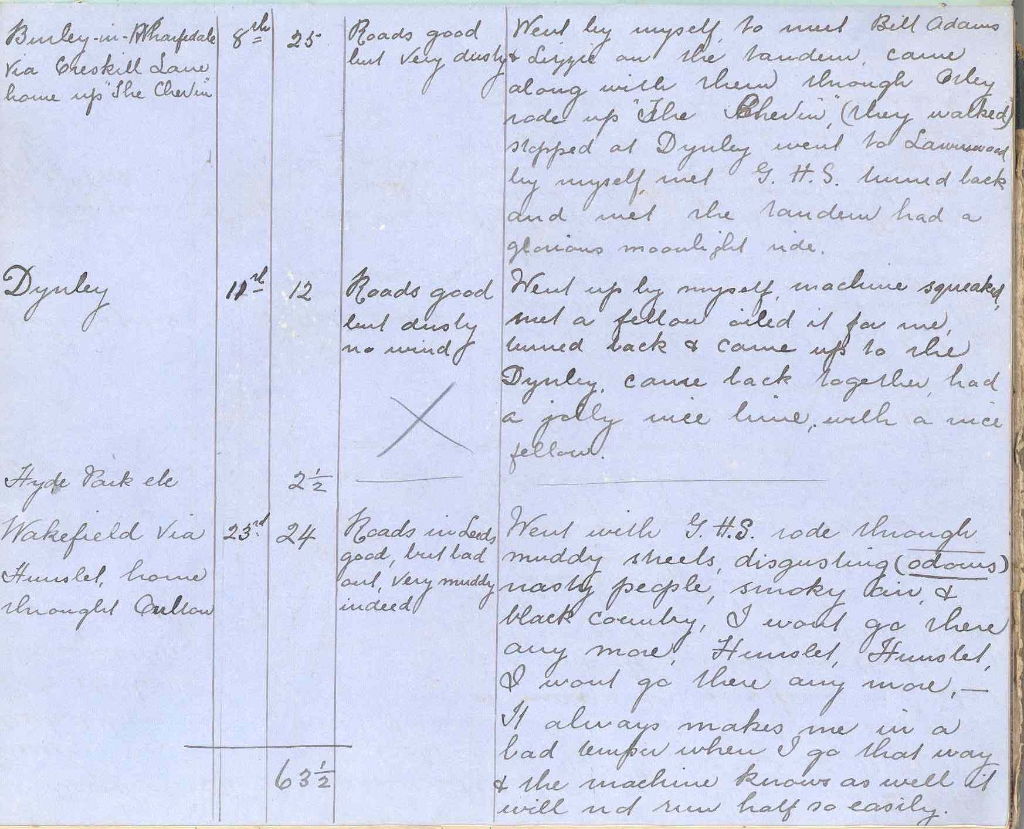 Burley-in-Wharfedale 8th 25 Roads good Went by myself, to meet Bill Adams
via Creskill Lane but very dusty & Lizzie on the tandem, came
home up "The Chevin" along with them through Otley
rode up "The Chevin", (they walked)
stopped at Dynley went to Lawnswood
by myself, met G. H. S. turned back
and met the tandem had a
glorious moonlight ride.
Dynley 11th 12 Roads good Went up by myself, machine squeaked,
but dusty met a fellow oiled it for me,
no wind turned back & came up to the
Dynley, came back together, had
a jolly nice time, with a nice
fellow.
Hyde Park etc 2½
Wakefield via 23rd 24 Roads in Leeds Went with G. H. S. rode through
good, but bad muddy streets, disgusting (odours)
Hunslet, home out, very muddy nasty people, smoky air, &
throught Oulton indeed black country, I wont go there
any more, Hunslet, Hunslet,
I wont go there any more, —
It always makes me in a
bad temper when I go that way
63½ & the machine knows as well it
will not run half so easily.